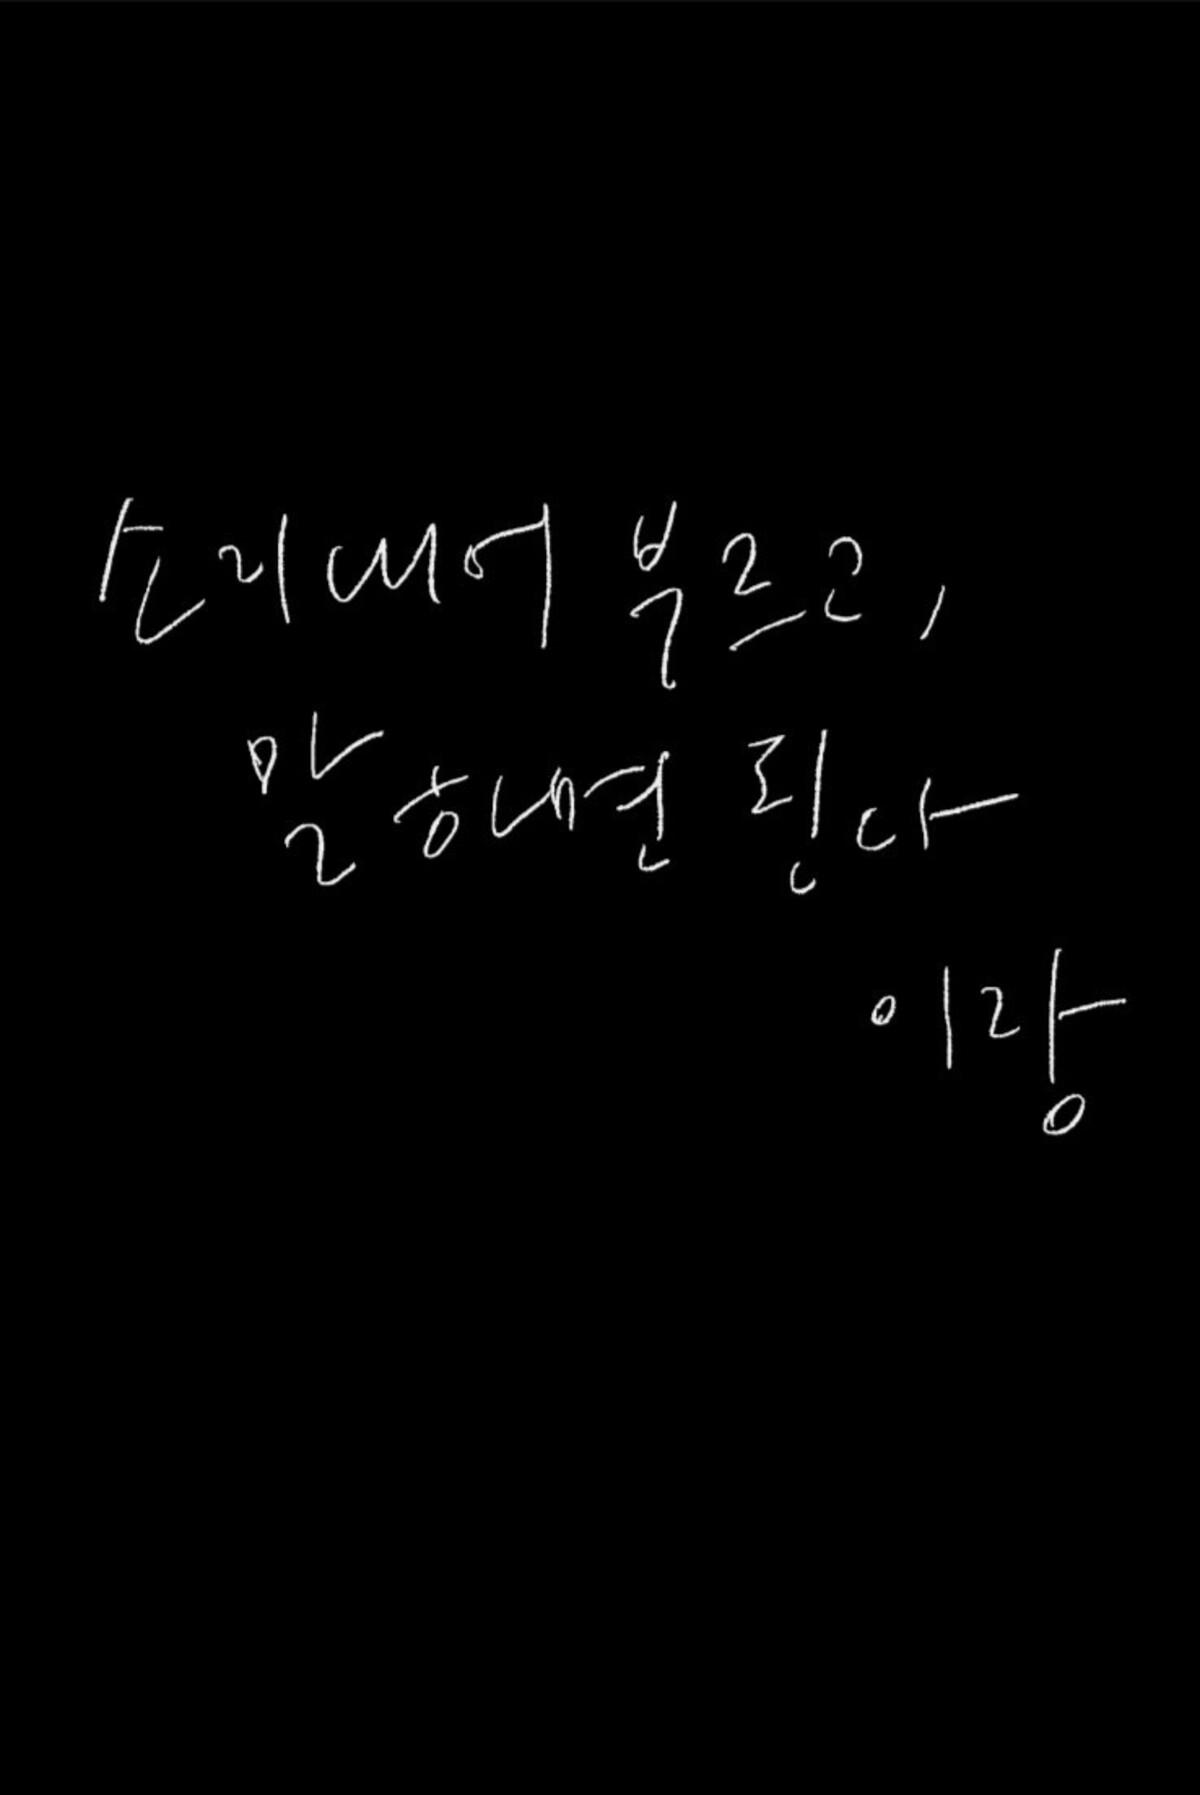 소리내어 부르고,
말하면 된다
이랑